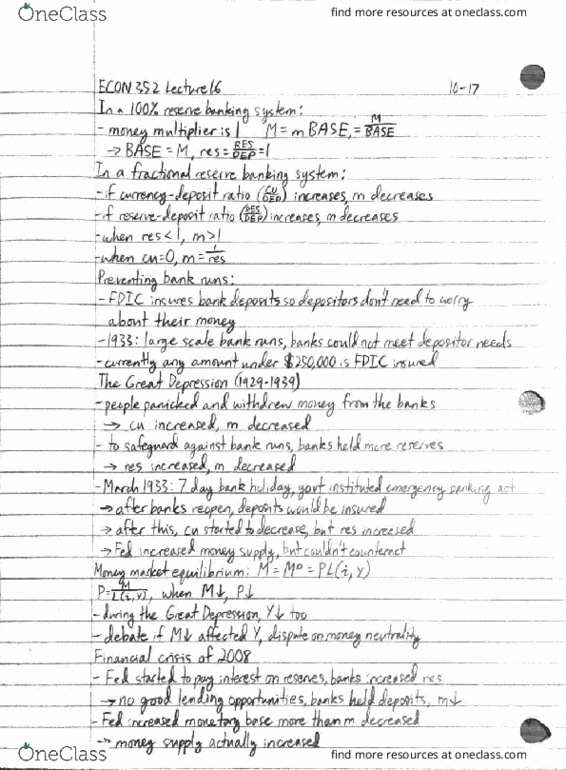 OneClass
find more resources at oneclass.com
ECON 352 Lecture 16 10-17
In a 100% reserve banking system:
- money multiplier is 1 M = m BASE, = M/BASE
→ BASE = M, res = RES/DEP = 1
In a fractional reserve banking system:
- if currency-deposit ratio (CU/DEP) increases, m decreases
- if reserve-deposit ratio (RES/DEP) increases, m decreases
- when res < 1, m > 1
- when cu = 0, m = 1/res
Preventing bank runs:
- FDIC insures bank deposits so depositors don't need to worry
about their money
- 1933: large scale bank runs, banks could not meet depositor needs
- currently any amount under $250,000 is FDIC insured
The Great Depression (1929-1939)
- people panicked and withdrew money from the banks
→ cu increased, m decreased
- to safeguard against bank runs, banks held more reserves
→ res increased, m decreased
- March 1933: 7 day bank holiday, govt instituted emergency banking act
→ after banks reopen, deposits would be insured
→ after this, cu started to decrease, but res increased
→ Fed increased money supply, but couldn't counteract
Money market equilibrium: M = Mᴰ = PL(i, Y)
P = M/L(i,Y), when M↓, P↓
- during the Great Depression, Y↓ too
- debate if M↓ affected Y, dispute on money neutrality
Financial crisis of 2008
- Fed started to pay interest on reserves, banks increased res
→ no good lending opportunities, banks held deposits, m↓
- Fed increased monetary base more than m decreased
→ money supply actually increased
OneClass
find more resources at oneclass.com